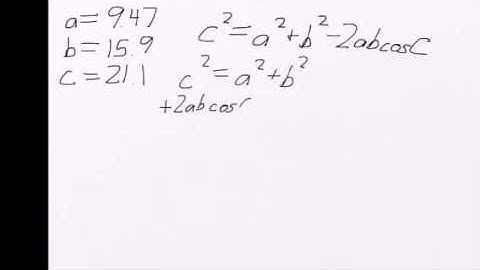 a = 9.47
b = 15.9
c = 21.1
c² = a² + b² - 2abcosC
c² = a² + b²
+2abcos